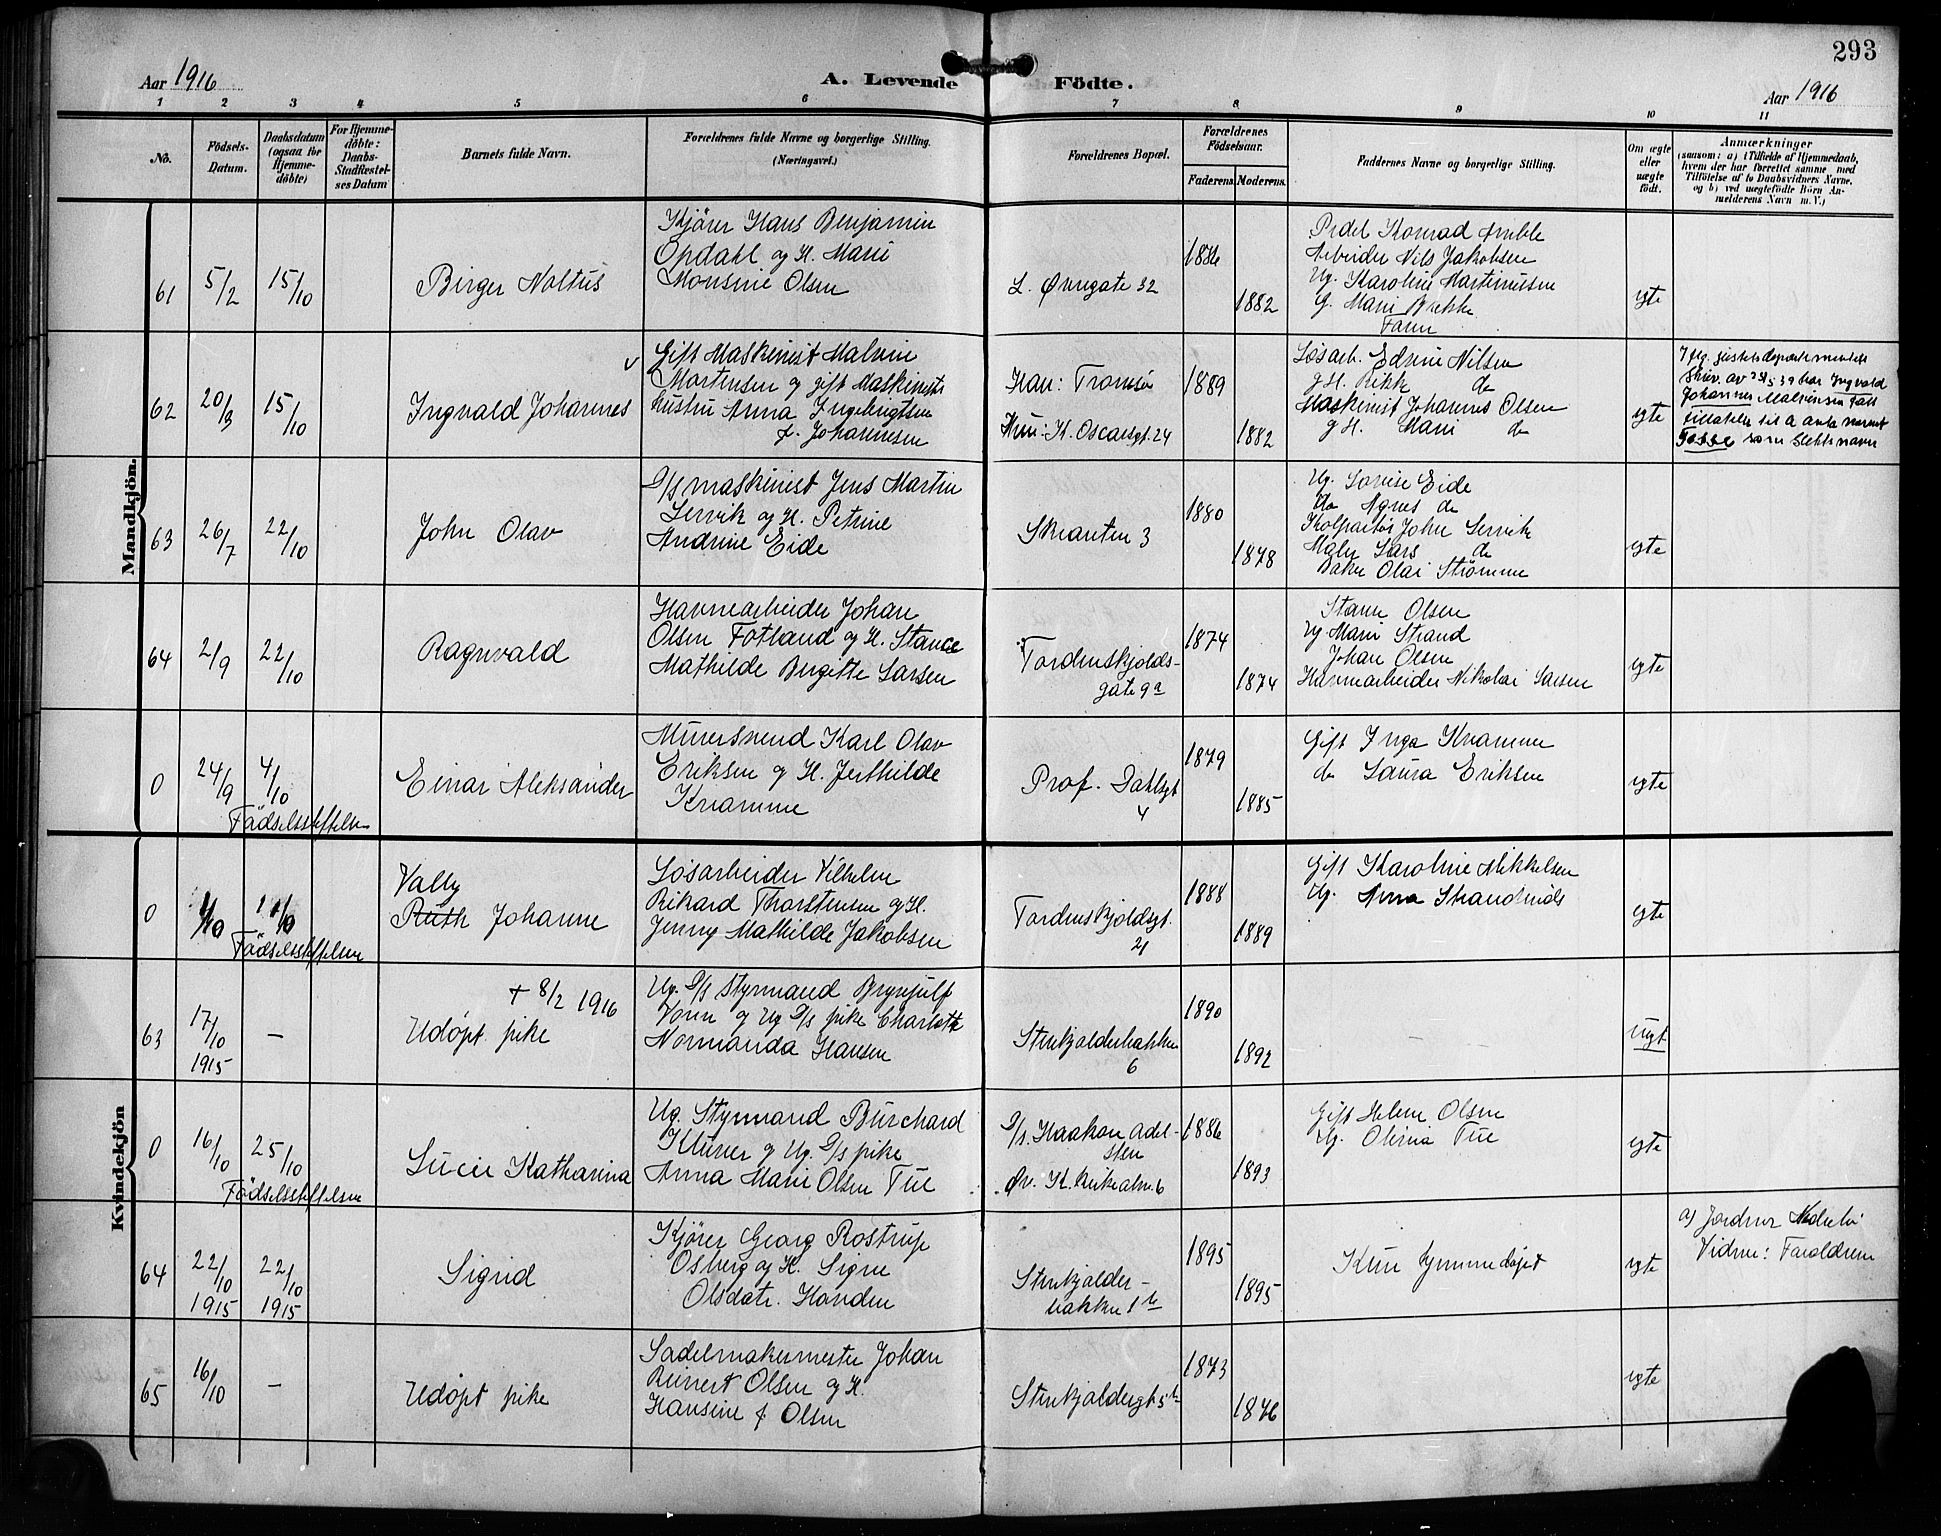 293
Aar 1916
A. Levende Födte.
Aar 1916
1 2 3 4 5 6 7 8 9 10 11
No.
Födsels-
Datum.
Daabsdatum
(ogsaa for
Hjemme-
döbte)
For Hjemme-
döbte:
Daabs-
Stadfæstel-
ses Datum
Barnets fulde Navn.
Forældrenes fulde Navne og borgerlige Stilling.
(Næringsvei.)
Forældrenes Bopæl.
Forældrenes
Födselsaar.
Faderens. Moderens.
Faddernes Navne og borgerlige Stilling.
Om ægte
eller
uægte
födt.
Anmærkninger
(saasom: a) i Tilfælde af Hjemmedaab,
hvem der har forrettet samme med
Tilföielse af to Daabsvidners Navne,
og b) ved uægtefödte Börn An-
melderens Navn m. V.)
Mandkjön.
61
5/2
15/10
Birger Noltus
Kjører Hans Benjamin
Opdahl og H. Marie
Monsine Olsen
L. Øvregate 32
1886
1882
Pedel Konrad
Arbeider Nils Jakobsen
Ug. Karoline Martinussen
G. Marie Brekke
Faren
egte
62
20/3
15/10
Ingvald Johannes
Gift Maskinist Malvin
Mortensen og gift Maskinists
hustru Anna Ingebrigtsen
f. Johannesen
Han: Tromsø
Hun: K. Oscarsgt. 24
1889
1882
Løsarb. Edvin Nilsen
g. H. Rikke do
Maskinist Johannes Olsen
g H. Marie do
egte
Iflg. justisdepartementets
skriv. av 39 har Ingvald
Johannes Malvinsen fått
tillatelse til å anta navnet
Fosse som slektsnavn
63
26/7
22/10
John Olav
D/s maskinist Jens Martin
Lervik og H. Petrine
Andrine Eide
Skanten 3
1880
1878
Ug. Lovise Eide
do Agnes do
Kolportør John Lervik
Maler Lars do
Baker Olai Strømme
egte
64
2/9
22/10
Ragnvald
Havnearbeider Johan
Olsen Fotland og H. Stance
Mathilde Birgitte Larsen
Tordenskjolds-
gate 9a
1874
1874
Olsen
Ug. Marie Strand
Johan Olsen
Havnearbeider Nikolai Larsen
egte
0
24/9
4/10
Fødselsstiftelsen
Einar Aleksander
Murersvend Karl Olav
Eriksen og H. Jerthilde
Kvamme
Prof. Dahlsgt
4
1879
1885
Gift Inga Kvamme
do Laura Eriksen
egte
Kvindekjön
0
1/10
11/10
Fødselsstiftelsen
Vally
Ruth Johanne
Løsarbeider Vilhelm
Rikard Thorstensen og H.
Jenny Mathilde Jakobsen
Tordenskjoldsgt.
21
1888
1889
Gift Karoline Mikkelsen
Ug. Anna
egte
63
17/10
1915
–
+ 8/2 1916
Udøpt pike
Ug. D/s Styrmand Brynjulf
Vorre og Ug D/s pike Charlotte
Normanda Hansen
Stenkjelderbakken
6
1890
1892
– –
uegt.
0
16/10
25/10
Fødselsstiftelsen
Lucie Katharina
Ug. Styrmand Burchard
Klüver og Ug. D/s pike
Anna Marie Olsen Tue
D/s. Haakon Adel-
sten
Øv. K. Kirkealm. 6
1886
1893
Gift Helene Olsen
Ug. Olivia Tue
egte
64
22/10
1915
22/10
1915
Sigrid
Kjører Georg Rostrup
Osberg og H. Signe
Olsdatr. Handen
Stenkjelder-
bakken 1b
1895
1895
Kun hjemmedøpt
egte
a) Jordmor
Vidner: Forældrene
65
16/10
–
Udøpt pike
Sadelmakermester Johan
Reinert Olsen og H.
Hansine f Olsen
Stenkjeldergt 5b
1873
1876
egte